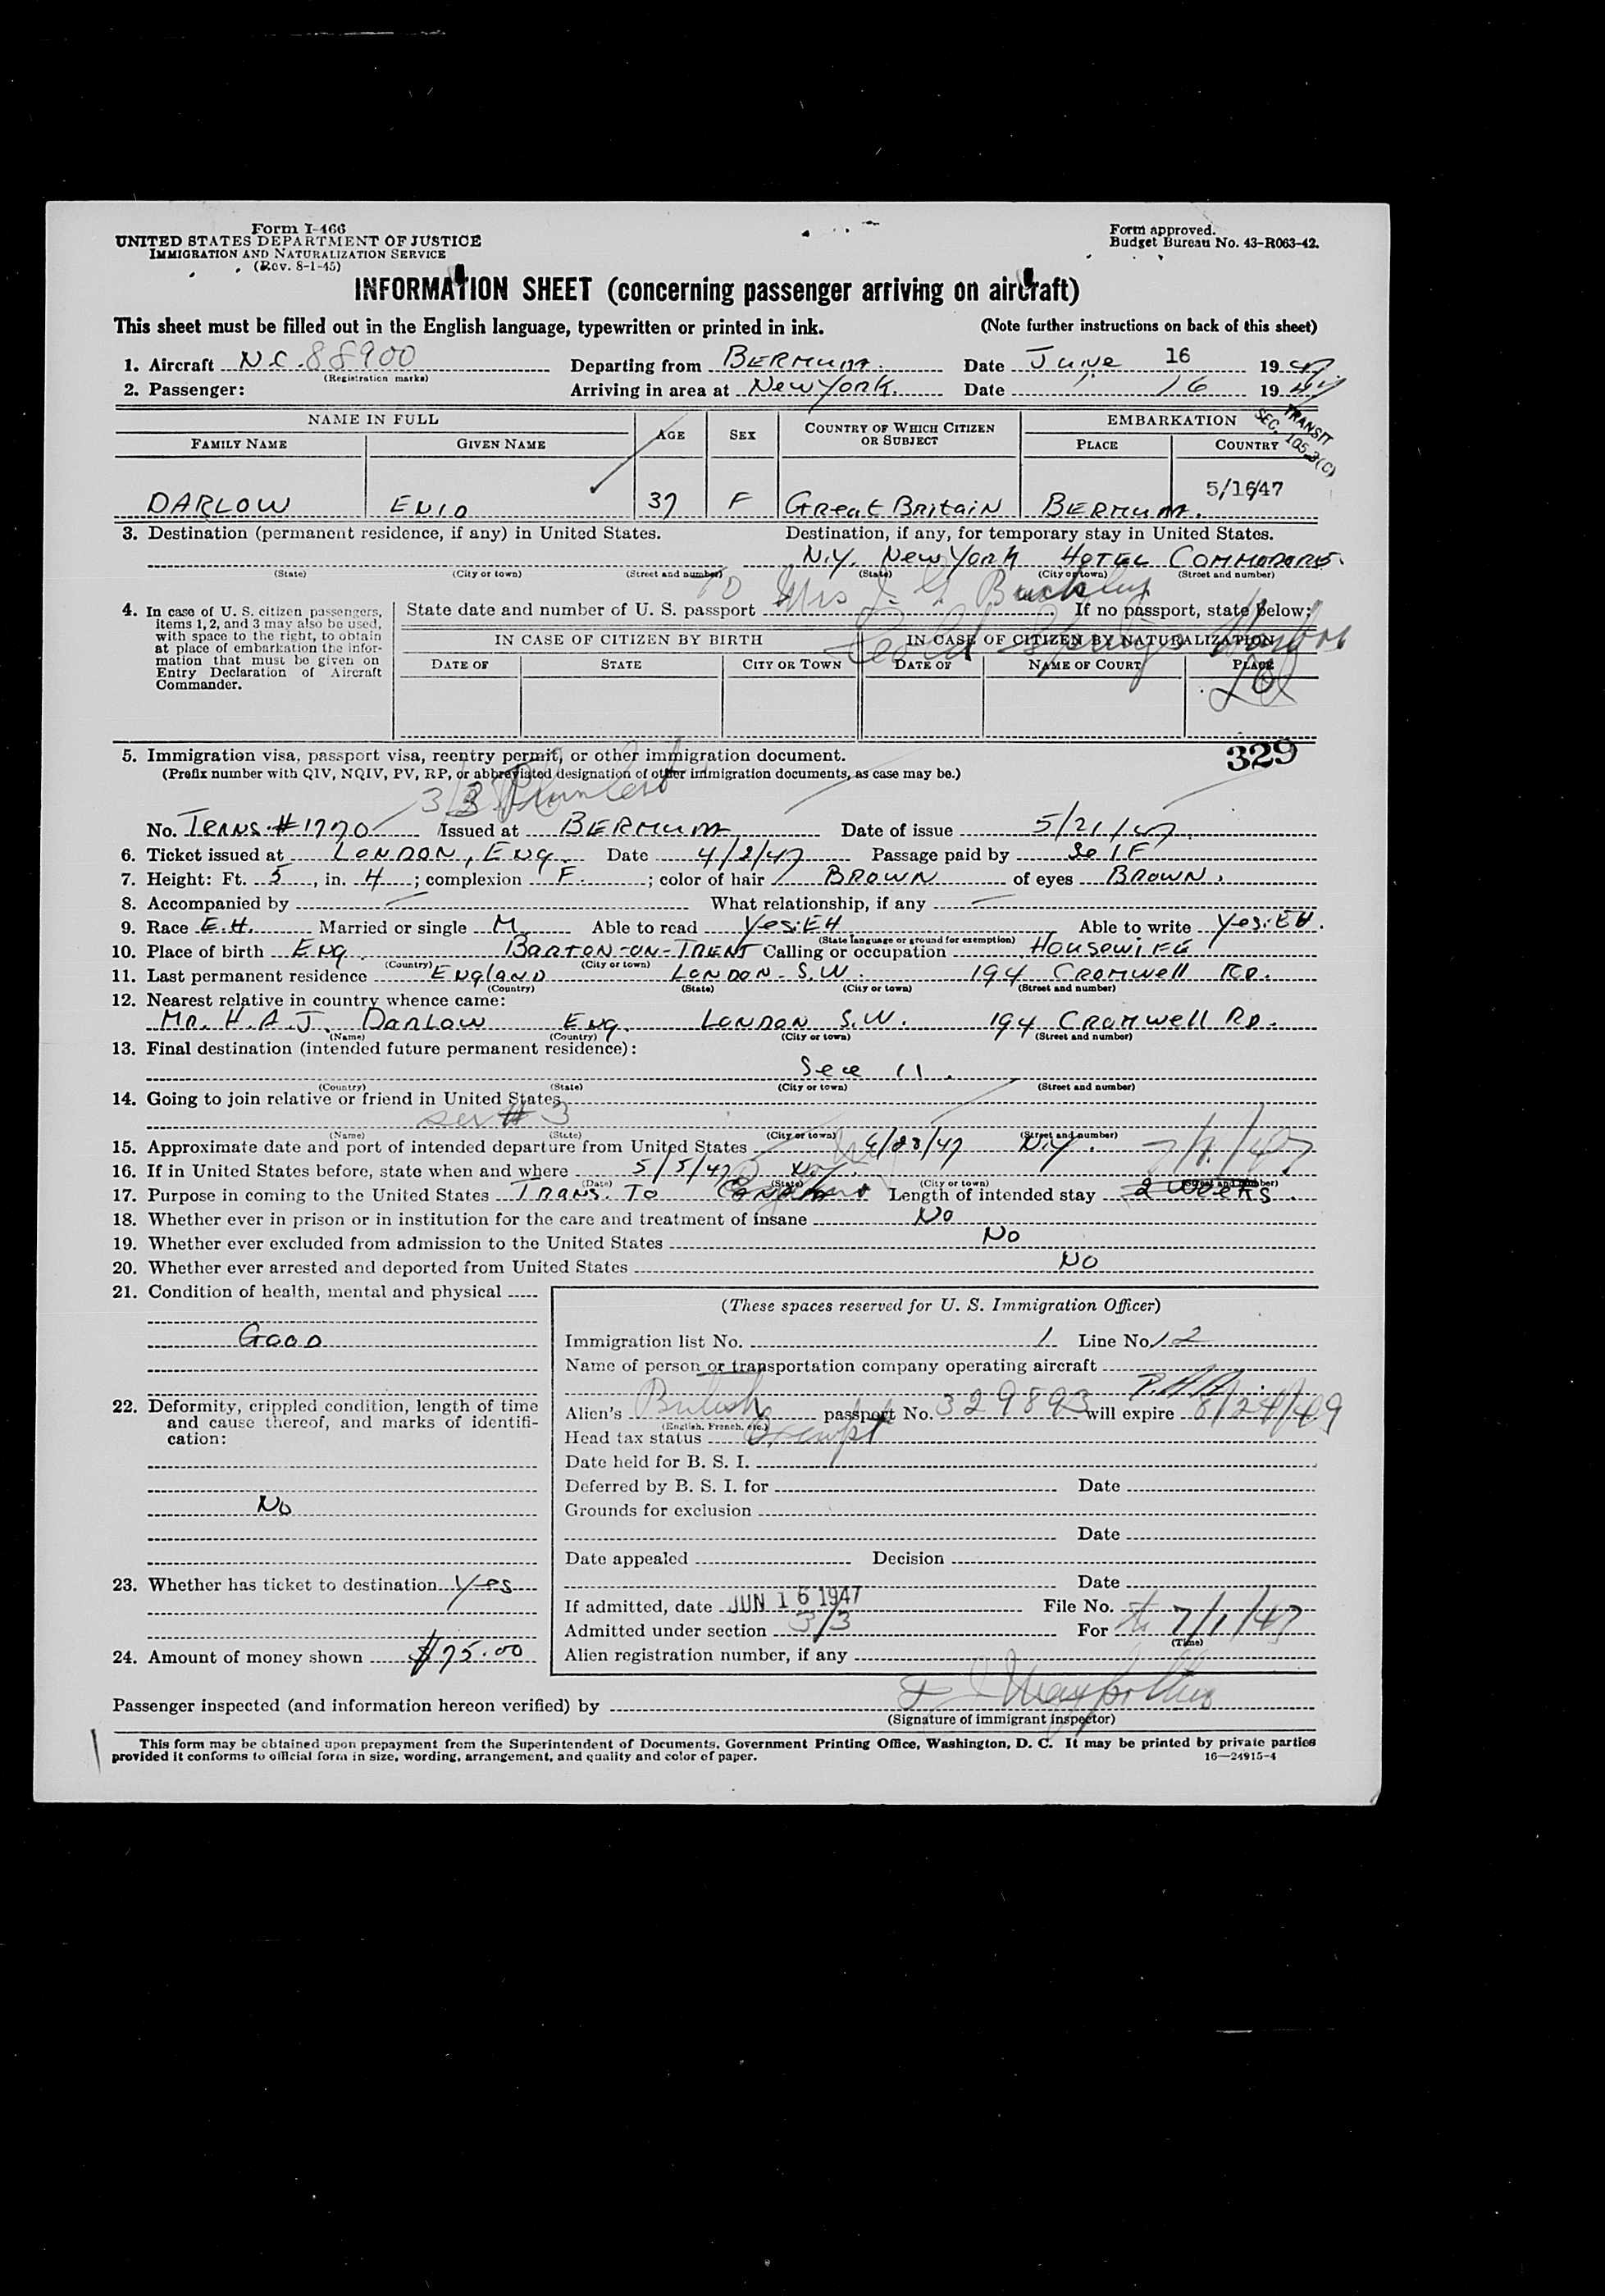 Form I-466
UNITED STATES DEPARTMENT OF JUSTICE
IMMIGRATION AND NATURALIZATION SERVICE
(Rev. 8-1-45)
Form approved.
Budget Bureau No. 43-R063-42.
INFORMATION SHEET (concerning passenger arriving on aircraft)
This sheet must be filled out in the English language, typewritten or printed in ink. (Note further instructions on back of this sheet)
1. Aircraft N.C. 88900 Departing from BERMUDA. Date June 16 1947
(Registration marks)
2. Passenger: Arriving in area at New York. Date " 16 1947
TRANSIT
SEC. 105.3(C)
NAME IN FULL AGE SEX COUNTRY OF WHICH CITIZEN OR SUBJECT EMBARKATION
FAMILY NAME GIVEN NAME PLACE COUNTRY
5/16/47
DARLOW ENID 37 F Great Britain BERMUDA.
3. Destination (permanent residence, if any) in United States. Destination, if any, for temporary stay in United States.
N.Y. New York HOTEL COMMODORE.
(State) (City or town) (Street and number) (State) (City or town) (Street and number)
To Mrs J. G. Buckley
Cold Springs Harbor
LI
4. In case of U. S. citizen passengers, items 1, 2, and 3 may also be used, with space to the right, to obtain at place of embarkation the information that must be given on Entry Declaration of Aircraft Commander.
State date and number of U. S. passport If no passport, state below:
IN CASE OF CITIZEN BY BIRTH IN CASE OF CITIZEN BY NATURALIZATION
DATE OF STATE CITY OR TOWN DATE OF NAME OF COURT PLACE
329
5. Immigration visa, passport visa, reentry permit, or other immigration document.
(Prefix number with QIV, NQIV, PV, RP, or abbreviated designation of other immigration documents, as case may be.)
No. Trans. #1770 Issued at BERMUDA Date of issue 5/21/47.
6. Ticket issued at LONDON, Eng. Date 4/2/47 Passage paid by Self
7. Height: Ft. 5, in. 4; complexion F.; color of hair BROWN of eyes BROWN.
8. Accompanied by — What relationship, if any —
9. Race E.H. Married or single M Able to read Yes: EH Able to write Yes: EH.
(State language or ground for exemption)
10. Place of birth Eng. BARTON-ON-TRENT Calling or occupation Housewife
(Country) (City or town)
11. Last permanent residence England LONDON - S.W. 194 Cromwell RD.
(Country) (State) (City or town) (Street and number)
12. Nearest relative in country whence came:
Mr. H.A.J. Darlow Eng. LONDON S.W. 194 Cromwell RD.
(Name) (Country) (City or town) (Street and number)
13. Final destination (intended future permanent residence):
See 11.
(Country) (State) (City or town) (Street and number)
14. Going to join relative or friend in United States
see # 3
(Name) (State) (City or town) (Street and number)
15. Approximate date and port of intended departure from United States 6/28/47 N.Y. 7/1/47
16. If in United States before, state when and where 5/5/47 N.Y.
(Date) (State) (City or town) (Street and number)
17. Purpose in coming to the United States TRANS. TO Length of intended stay 2 weeks.
18. Whether ever in prison or in institution for the care and treatment of insane No
19. Whether ever excluded from admission to the United States No
20. Whether ever arrested and deported from United States No
21. Condition of health, mental and physical
Good
22. Deformity, crippled condition, length of time and cause thereof, and marks of identification:
No
23. Whether has ticket to destination Yes
24. Amount of money shown $75.00
(These spaces reserved for U. S. Immigration Officer)
Immigration list No. 1 Line No. 12
Name of person or transportation company operating aircraft
P.A.A.
Alien's British passport No. 329893 will expire 8/24/49
(English, French, etc.)
Head tax status Exempt
Date held for B. S. I.
Deferred by B. S. I. for Date
Grounds for exclusion
Date
Date appealed Decision
Date
If admitted, date JUN 16 1947 File No.
Admitted under section 3/3 For to 7/1/47
(Time)
Alien registration number, if any
Passenger inspected (and information hereon verified) by
(Signature of immigrant inspector)
This form may be obtained upon prepayment from the Superintendent of Documents, Government Printing Office, Washington, D. C. It may be printed by private parties
provided it conforms to official form in size, wording, arrangement, and quality and color of paper. 16—24915-4